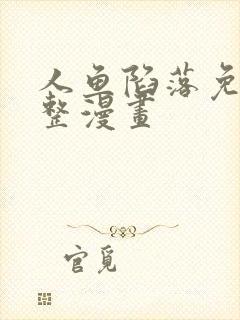 人鱼陷落免
整漫畫
官覓